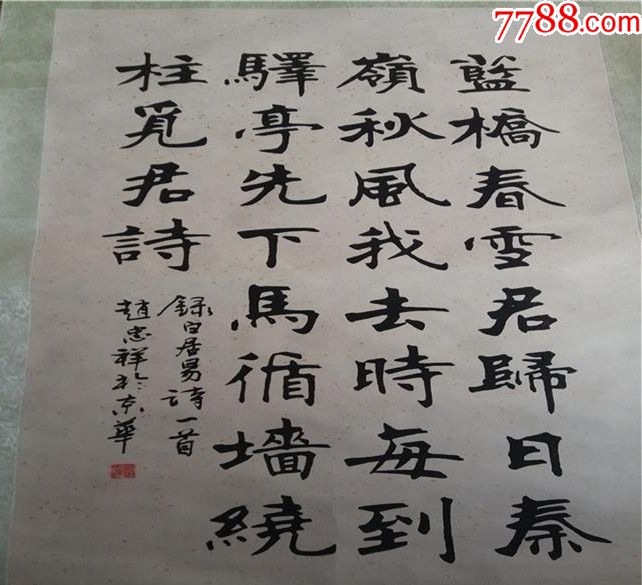 7788.com
藍橋春雪君歸日秦
嶺秋風我去時每到
驛亭先下馬循墻繞
柱覓君詩
錄白居易詩一首
趙忠祥於京華